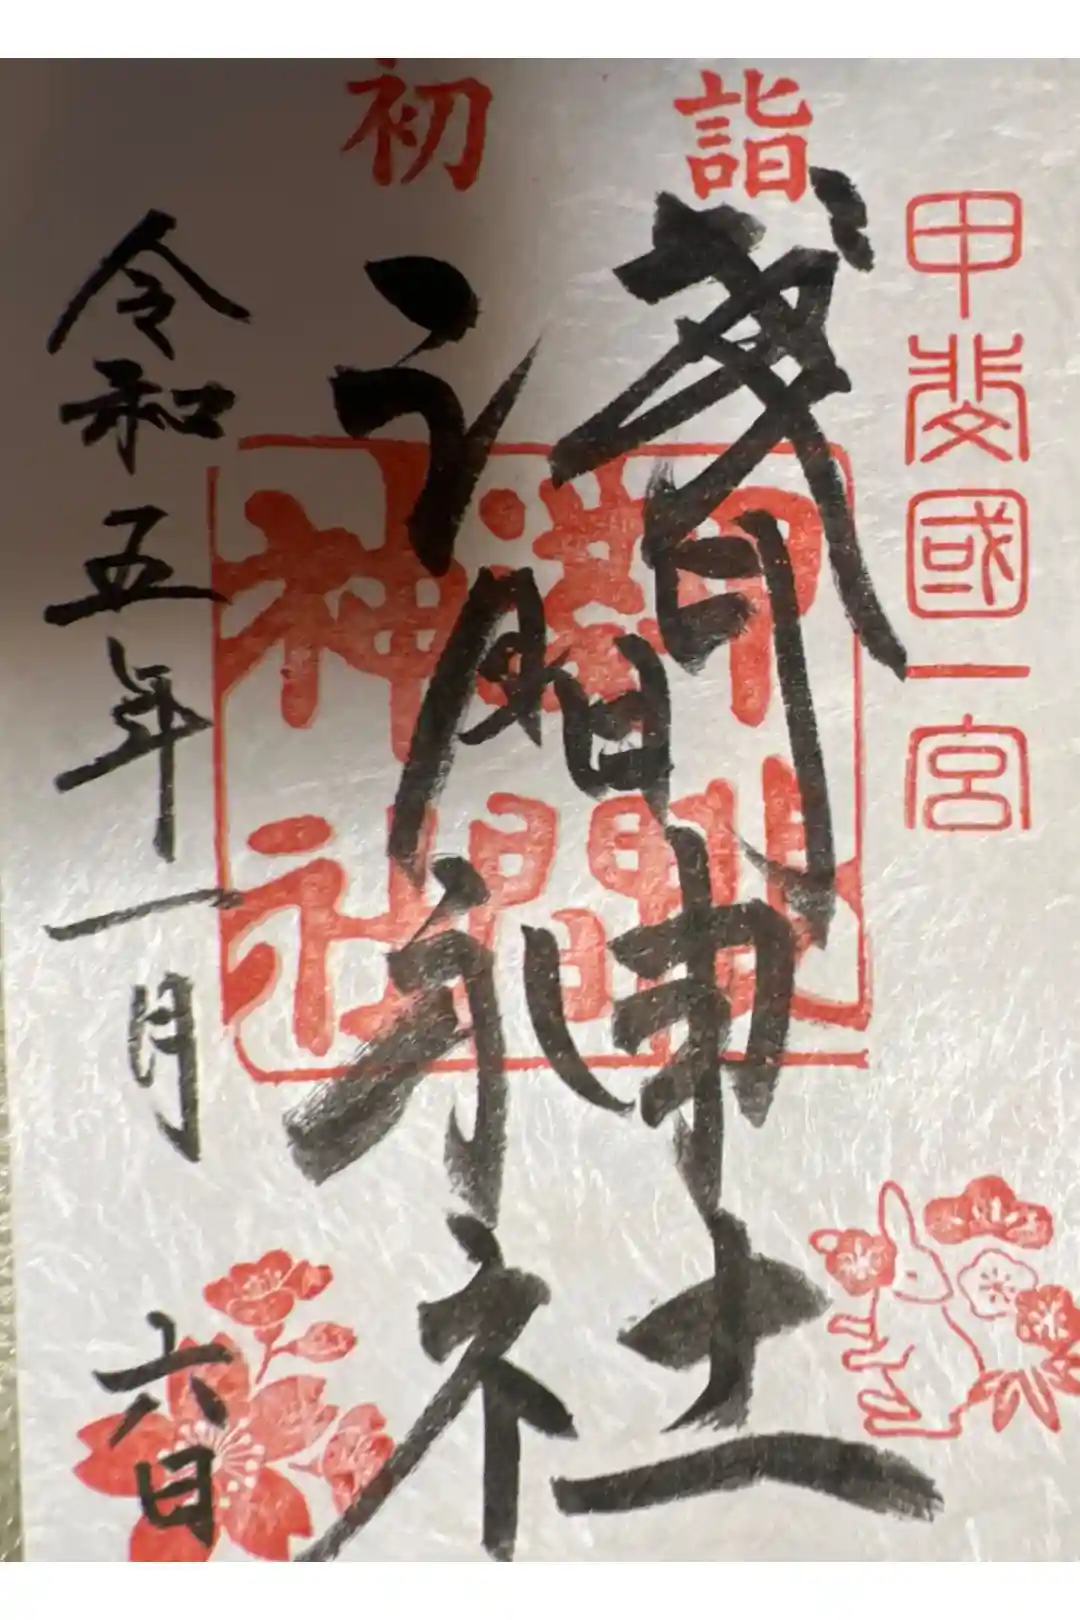 初詣
甲斐國一宮
浅間神社
甲斐國
淺間
神社
令和五年一月六日